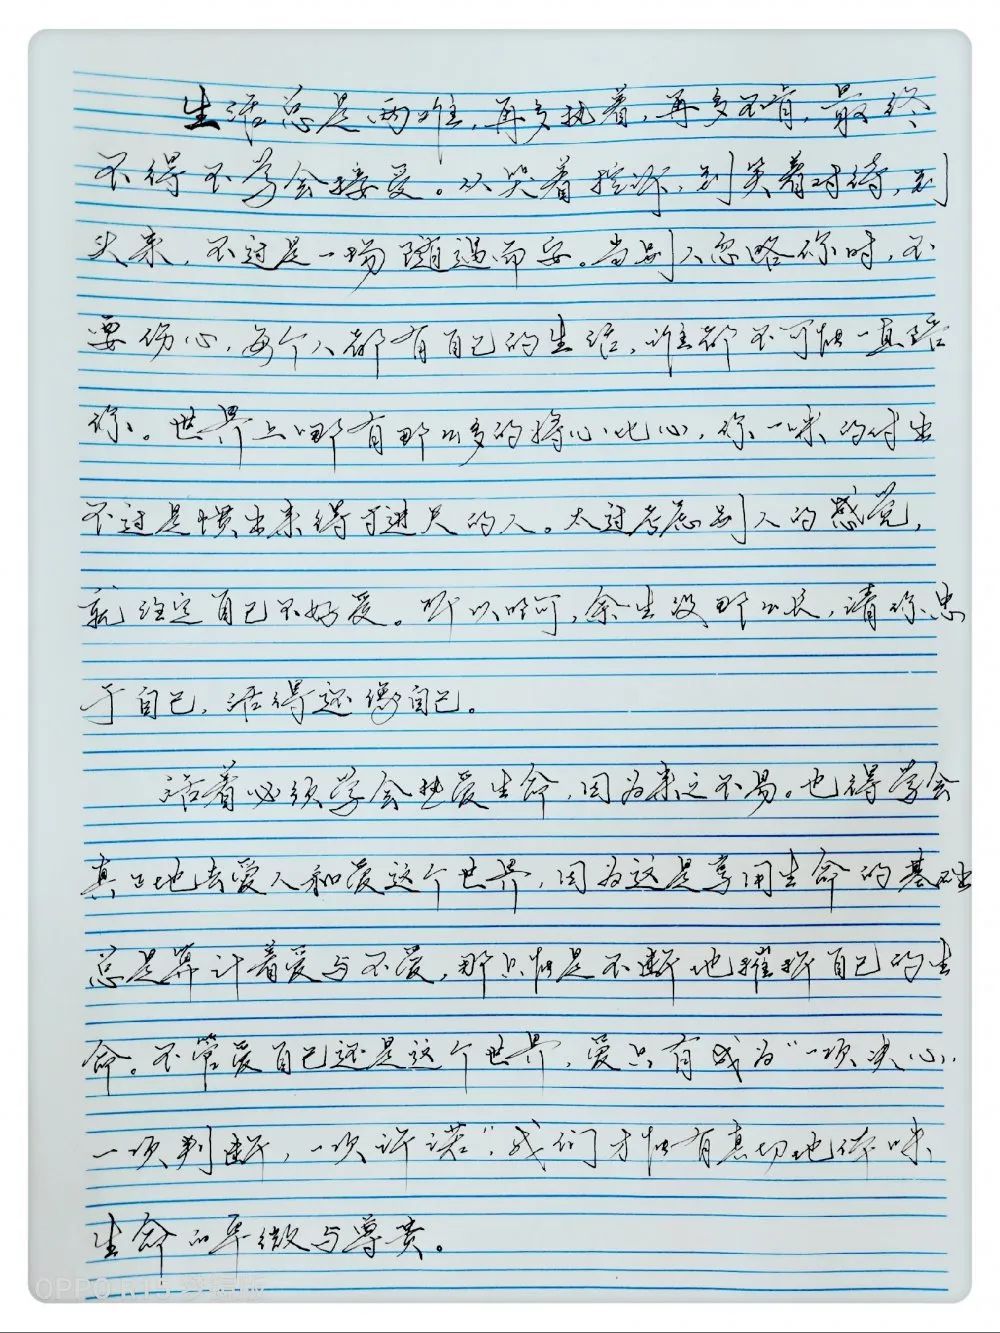 生活总是两难，再多执着，再多不肯，最终
不得不学会接受。从哭着控诉，到笑着对待，到
头来，不过是一场随遇而安。当别人忽略你时，不
要伤心，每个人都有自己的生活，谁都不可能一直陪
你。世界上哪有那么多的将心比心，你一味的付出
不过是惯出来得寸进尺的人。太过考虑别人的感觉，
就注定自己不好受。所以啊，余生没那么长，请你忠
于自己，活得还像自己。
活着必须学会热爱生命，因为来之不易。也得学会
真正地去爱人和爱这个世界，因为这是享用生命的基础
总是算计着爱与不爱，那只能是不断地摧折自己的生
命。不管爱自己还是这个世界，爱只有成为“一项决心、
一项判断，一次许诺”，我们才能有真切地体味
生命的卑微与尊贵。
OPPO R15 梦镜版